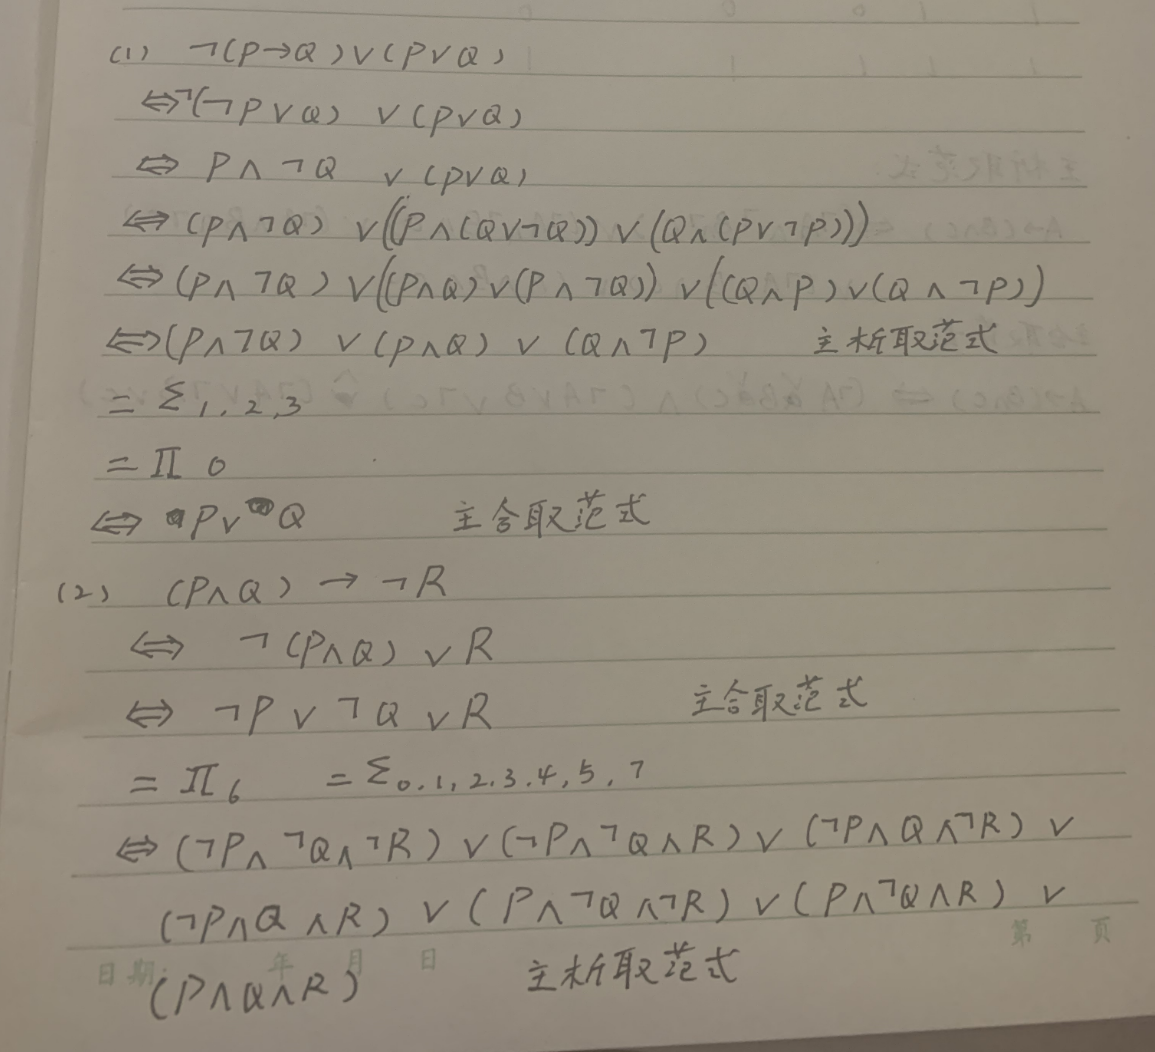 (1) ¬(P→Q)∨(P∨Q)
⇔¬(¬P∨Q) ∨(P∨Q)
⇔ P∧¬Q ∨(P∨Q)
⇔(P∧¬Q) ∨((P∧(Q∨¬Q))∨(Q∧(P∨¬P)))
⇔(P∧¬Q)∨((P∧Q)∨(P∧¬Q)) ∨((Q∧P)∨(Q∧¬P))
⇔(P∧¬Q) ∨(P∧Q) ∨ (Q∧¬P) 主析取范式
= Σ1,2,3
= Π 0
⇔ P∨Q 主合取范式
(2) (P∧Q) → ¬R
⇔ ¬(P∧Q) ∨R
⇔ ¬P∨¬Q∨R 主合取范式
= Π6 = Σ0.1,2.3.4,5,7
⇔(¬P∧¬Q∧¬R)∨(¬P∧¬Q∧R)∨(¬P∧Q∧¬R)∨
(¬P∧Q∧R)∨(P∧¬Q∧¬R)∨(P∧¬Q∧R)∨
日期: 年 月 日 第 页
(P∧Q∧R) 主析取范式